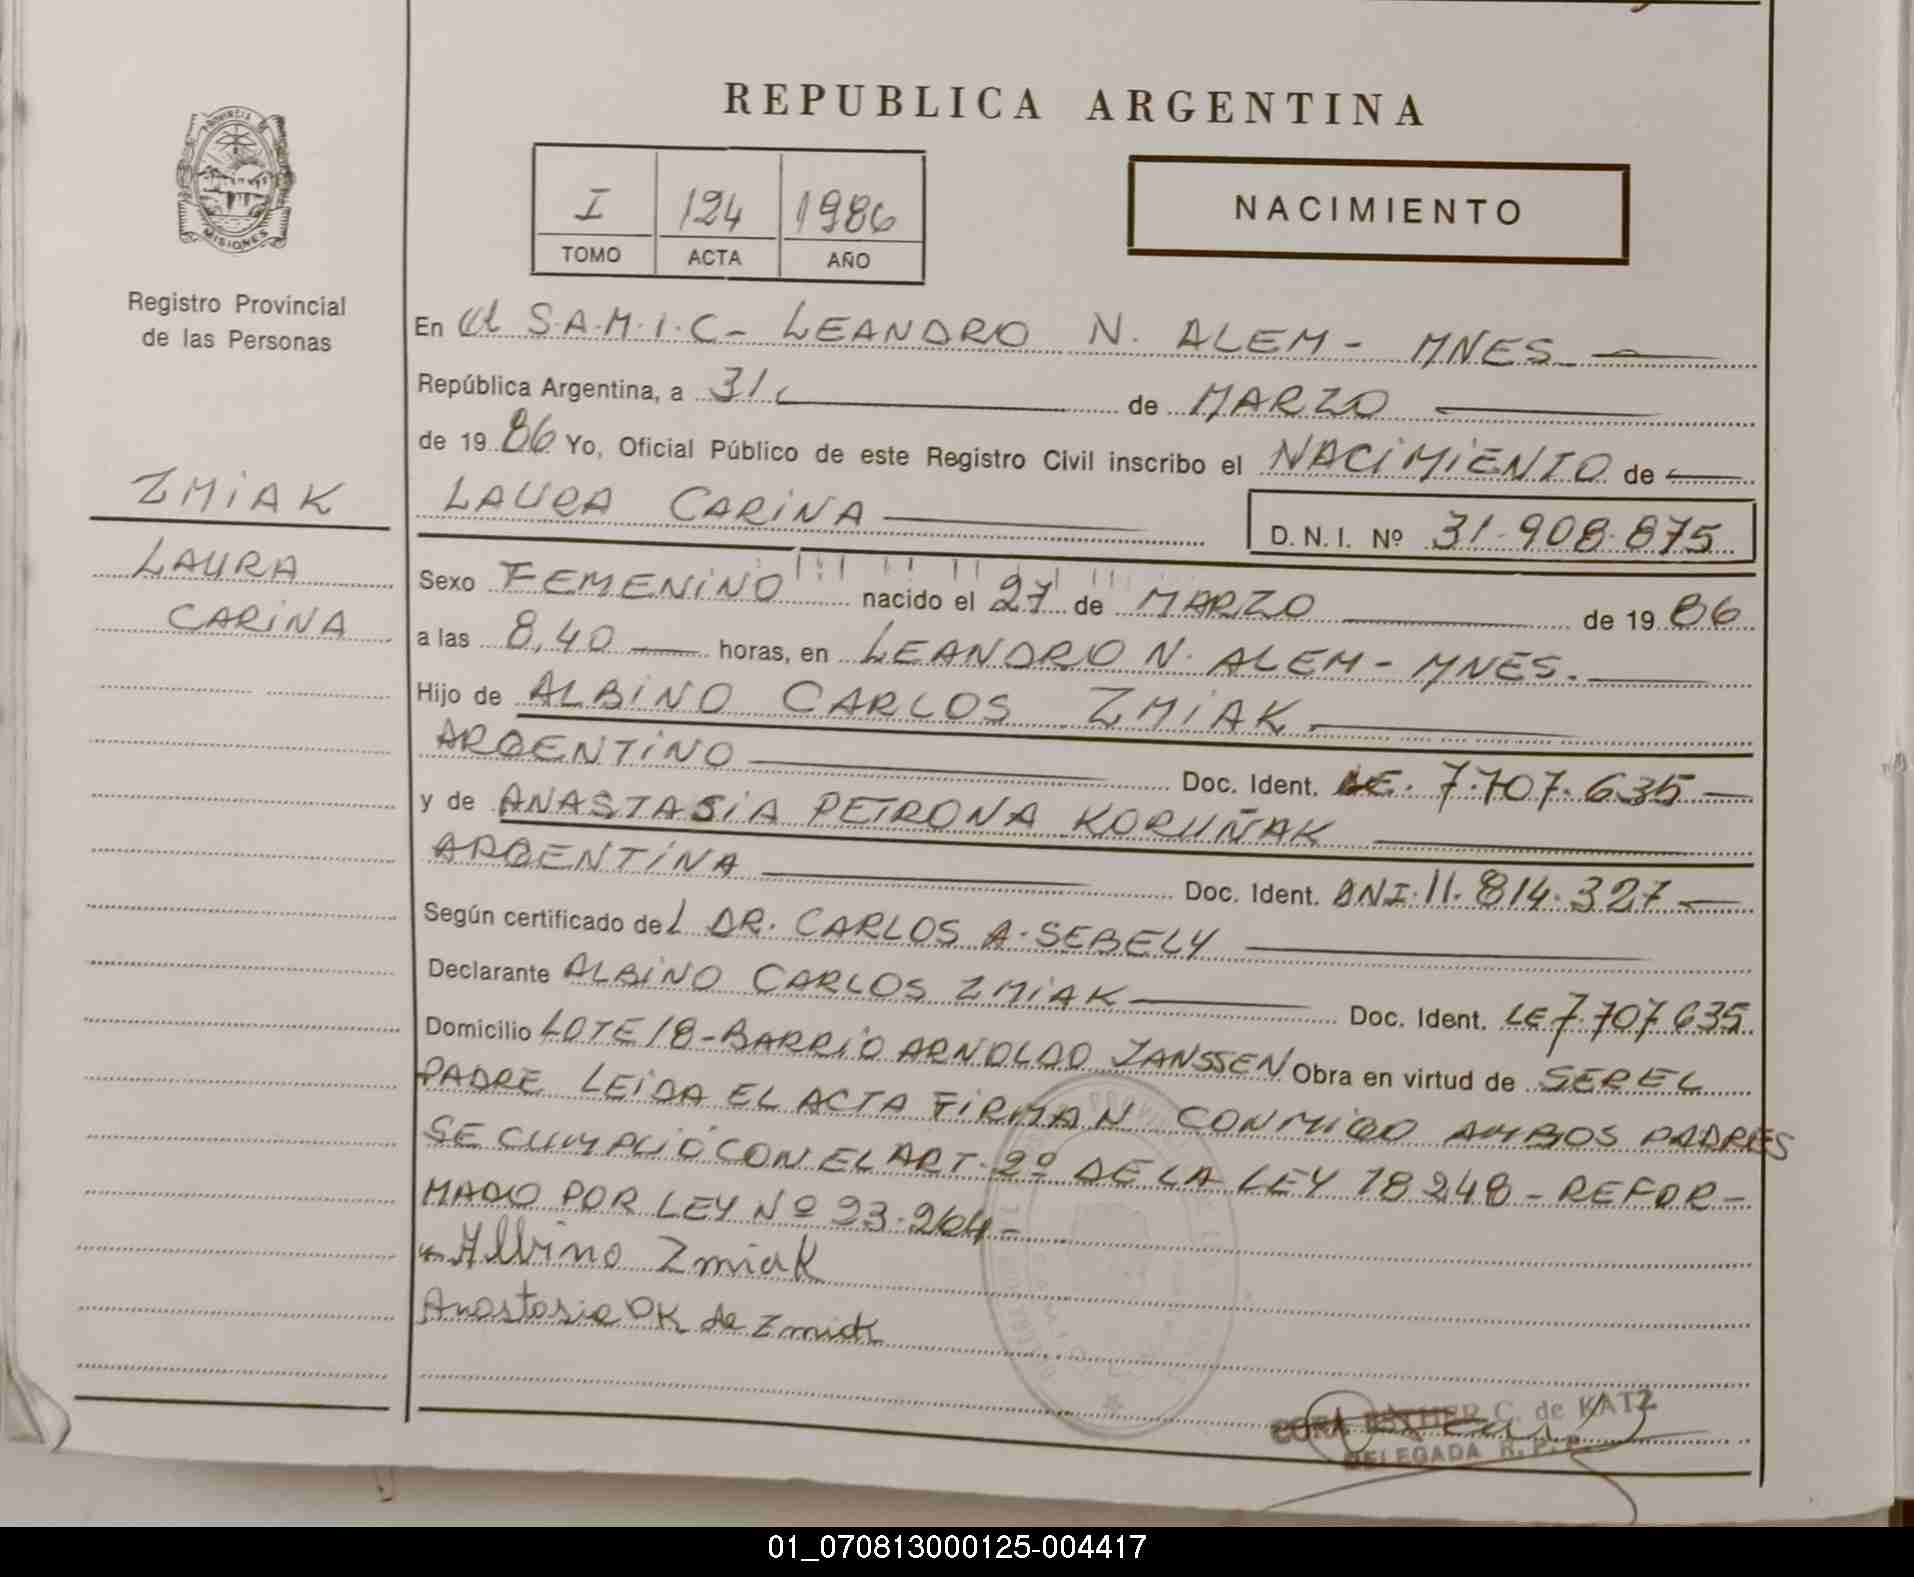 REPUBLICA ARGENTINA
PROVINCIA DE
MISIONES
Registro Provincial
de las Personas
I 124 1986
TOMO ACTA AÑO
NACIMIENTO
En el S.A.M.I.C- LEANDRO N. ALEM - MNES
República Argentina, a 31 de MARZO
de 1986 Yo, Oficial Público de este Registro Civil inscribo el NACIMIENTO de
LAURA CARINA
D. N. I. Nº 31.908.875
ZMIAK
LAURA
CARINA
Sexo FEMENINO nacido el 27 de MARZO de 1986
a las 8,40 horas, en LEANDRO N. ALEM - MNES.
Hijo de ALBINO CARLOS ZMIAK
ARGENTINO Doc. Ident. LE. 7.707.635
y de ANASTASIA PETRONA KORUÑAK
ARGENTINA Doc. Ident. DNI.11.814.327
Según certificado del DR. CARLOS A. SEBELY
Declarante ALBINO CARLOS ZMIAK Doc. Ident. LE 7.707.635
Domicilio LOTE 18-BARRIO ARNOLDO JANSSEN Obra en virtud de SER EL
PADRE LEIDA EL ACTA FIRMAN CONMIGO AMBOS PADRES
SE CUMPLIÓ CON EL ART. 2º DE LA LEY 18248 - REFOR-
MADO POR LEY Nº 23.264-
Albino Zmiak
Anastasia PK de Zmiak
CORA ESTHER C. de KATZ
DELEGADA R. P. P.
01_070813000125-004417